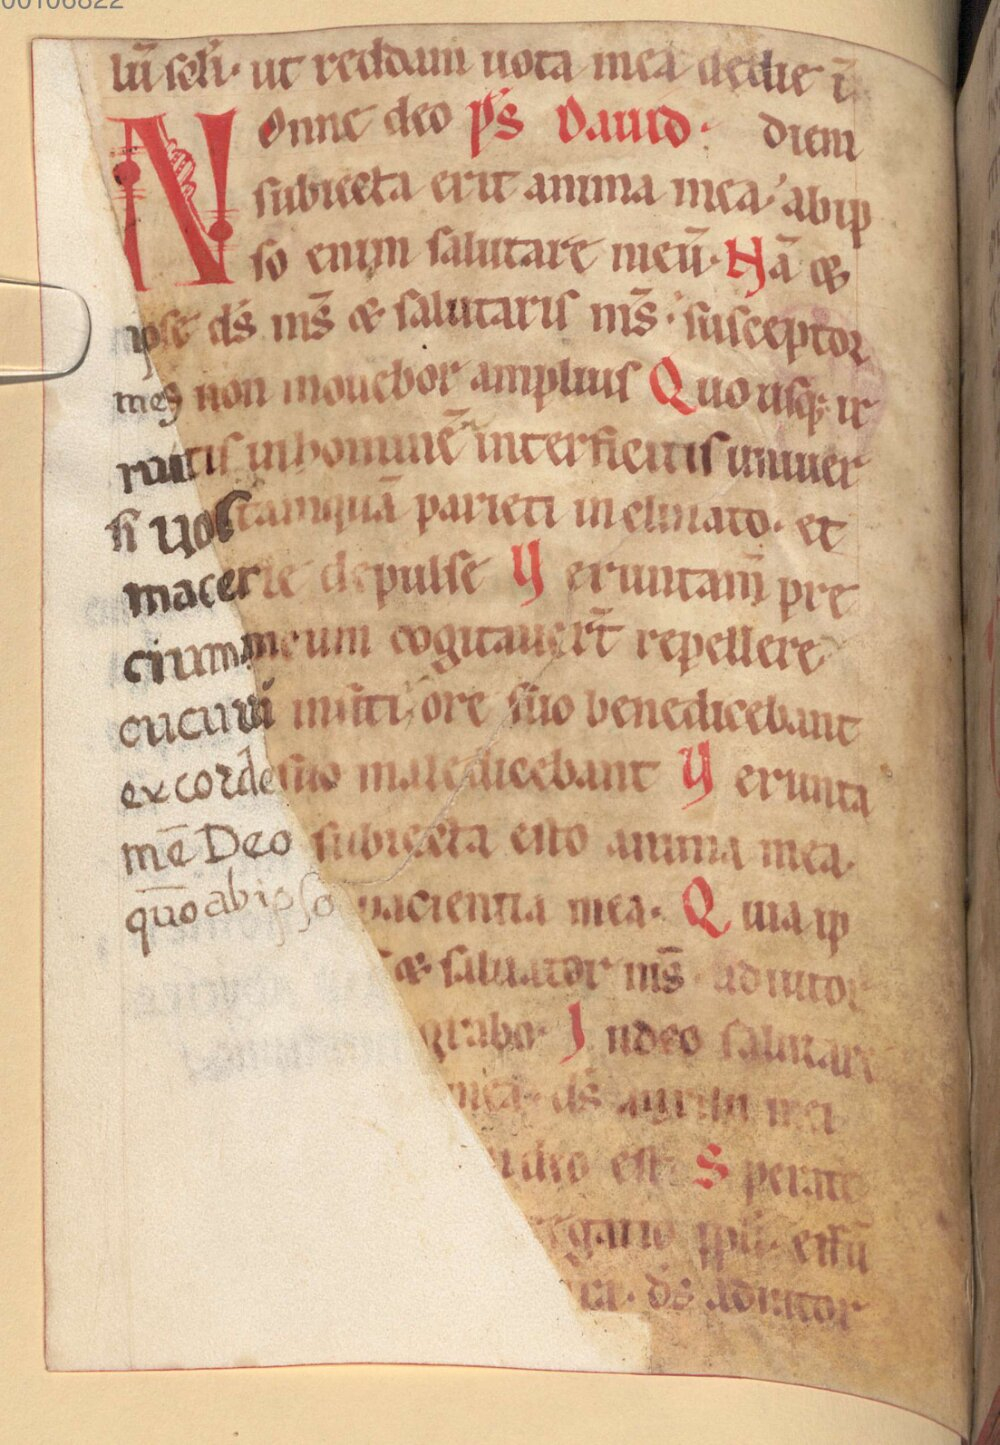 00106822
lũ scłi· ut reddam uota mea dedie ĩ
Nonne deo p̃s Dauid· diem
subiecta erit anima mea· abip
so enim salutare meũ· Nã &
ipse ds̃ ms̃ & salutaris ms̃· susceptor
meꝯ non mouebor amplius Quo usq; ir
ruitis in hominẽ interficitis uniuer
si uos tamquã parieti inclinato· et
macerie depulse Y eruntam̃ pre
cium meum cogitauer̃t repellere
cucurri in siti, ore suo benedicebant
ex corde suo maledicebant Y erunta
mẽ Deo subiecta esto anima mea·
qũo ab ipso paciencia mea· Quia ip
& saluator ms̃ adiutor
grabo· In deo salutare
mea· ds̃ auxilii mei
deo est Sperate
gatio pp̃li· effũ
ra· ds̃ adiutor